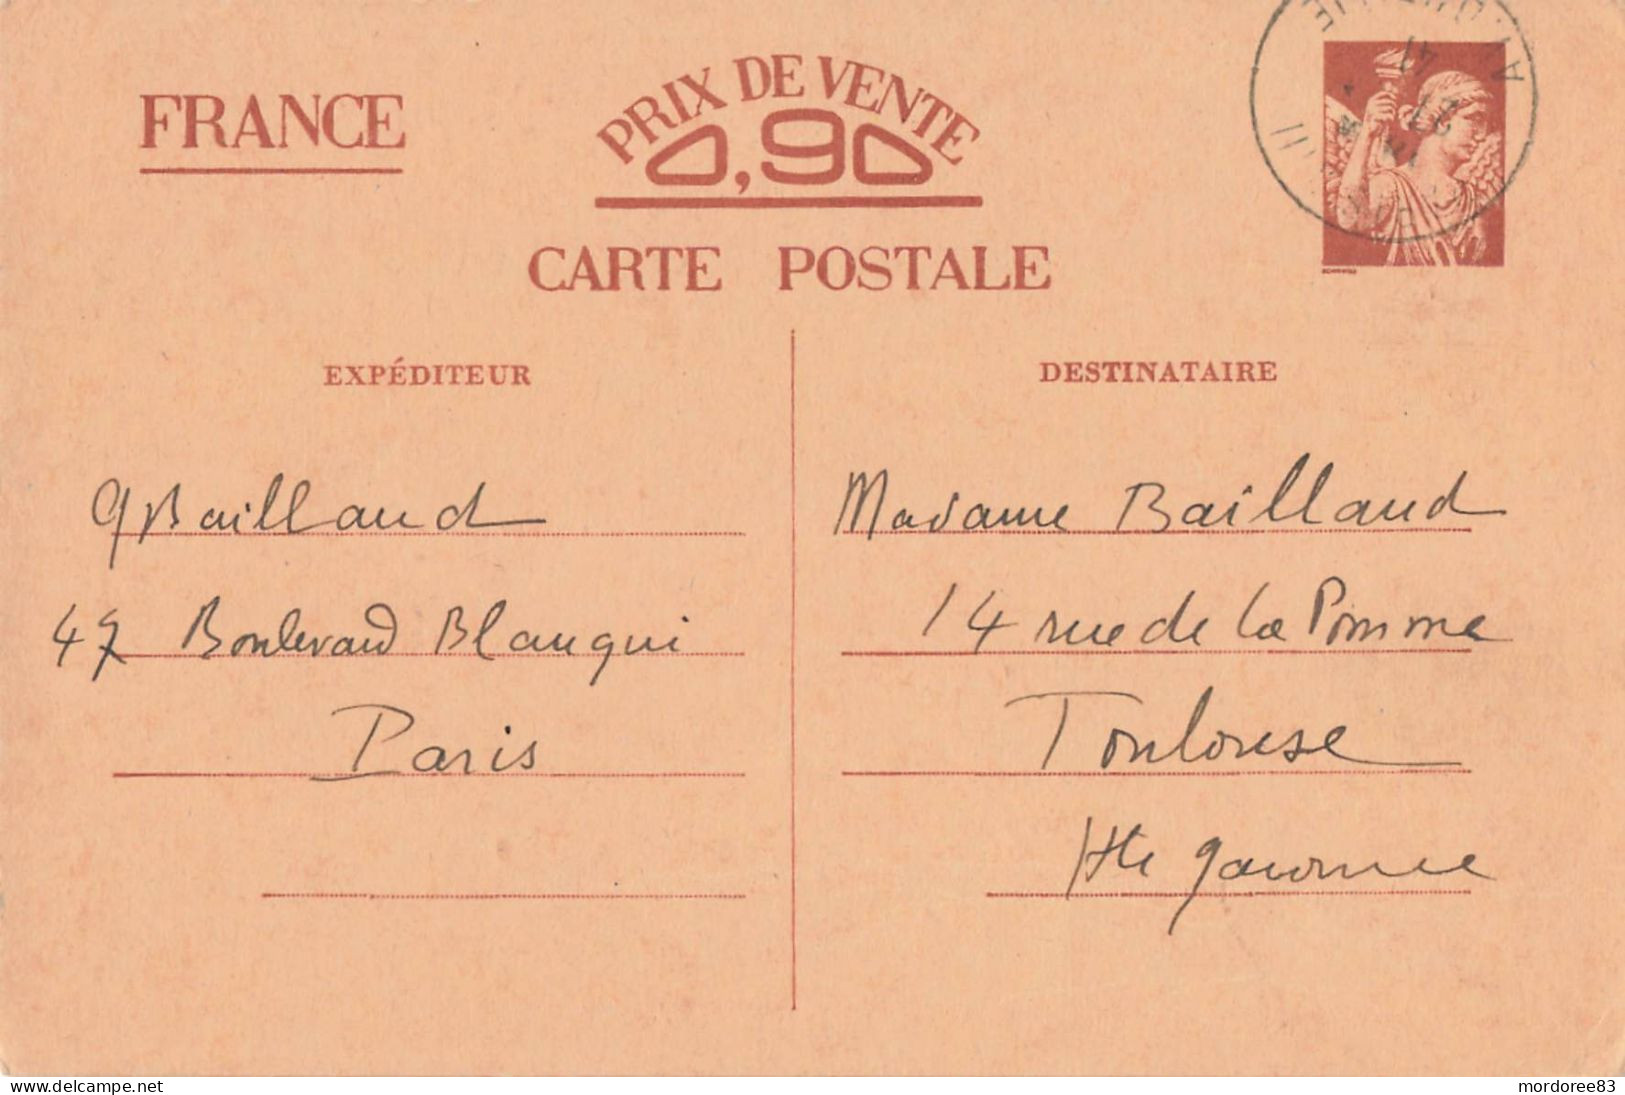 FRANCE
PRIX DE VENTE
0,90
CARTE POSTALE
41
27
EXPÉDITEUR
DESTINATAIRE
Baillaud
47 Boulevard Blanqui
Paris
Madame Baillaud
14 rue de la Pomme
Toulouse
Hte garonne
mordoree83